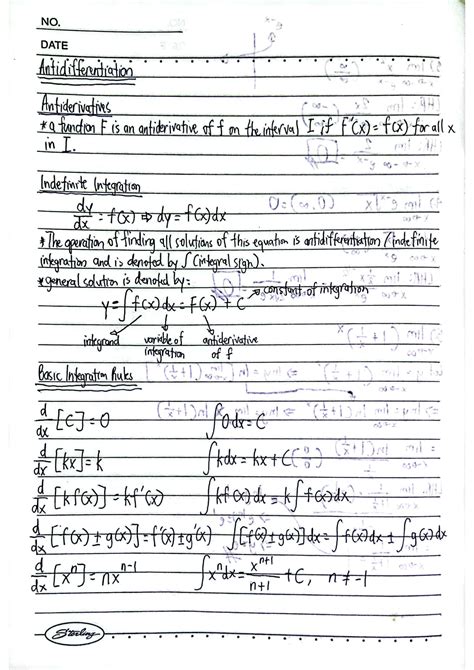 NO.
DATE
Antidifferentiation
Antiderivatives
* a function F is an antiderivative of f on the interval I if F'(x) = f(x) for all x
in I.
Indefinite Integration
dy/dx = f(x) ⇒ dy = f(x)dx
* The operation of finding all solutions of this equation is antidifferentiation / indefinite
integration and is denoted by ∫ (integral sign).
* general solution is denoted by:
y = ∫ f(x) dx = F(x) + C → constant of integration
integrand variable of antiderivative
integration of f
Basic Integration Rules
d/dx [C] = 0 ∫ 0 dx = C
d/dx [kx] = k ∫ k dx = kx + C
d/dx [k f(x)] = k f'(x) ∫ k f(x) dx = k ∫ f(x) dx
d/dx [f(x) ± g(x)] = f'(x) ± g'(x) ∫ [f(x) ± g(x)] dx = ∫ f(x) dx ± ∫ g(x) dx
d/dx [xⁿ] = nxⁿ⁻¹ ∫ xⁿ dx = xⁿ⁺¹/n+1 + C, n ≠ -1
Sterling